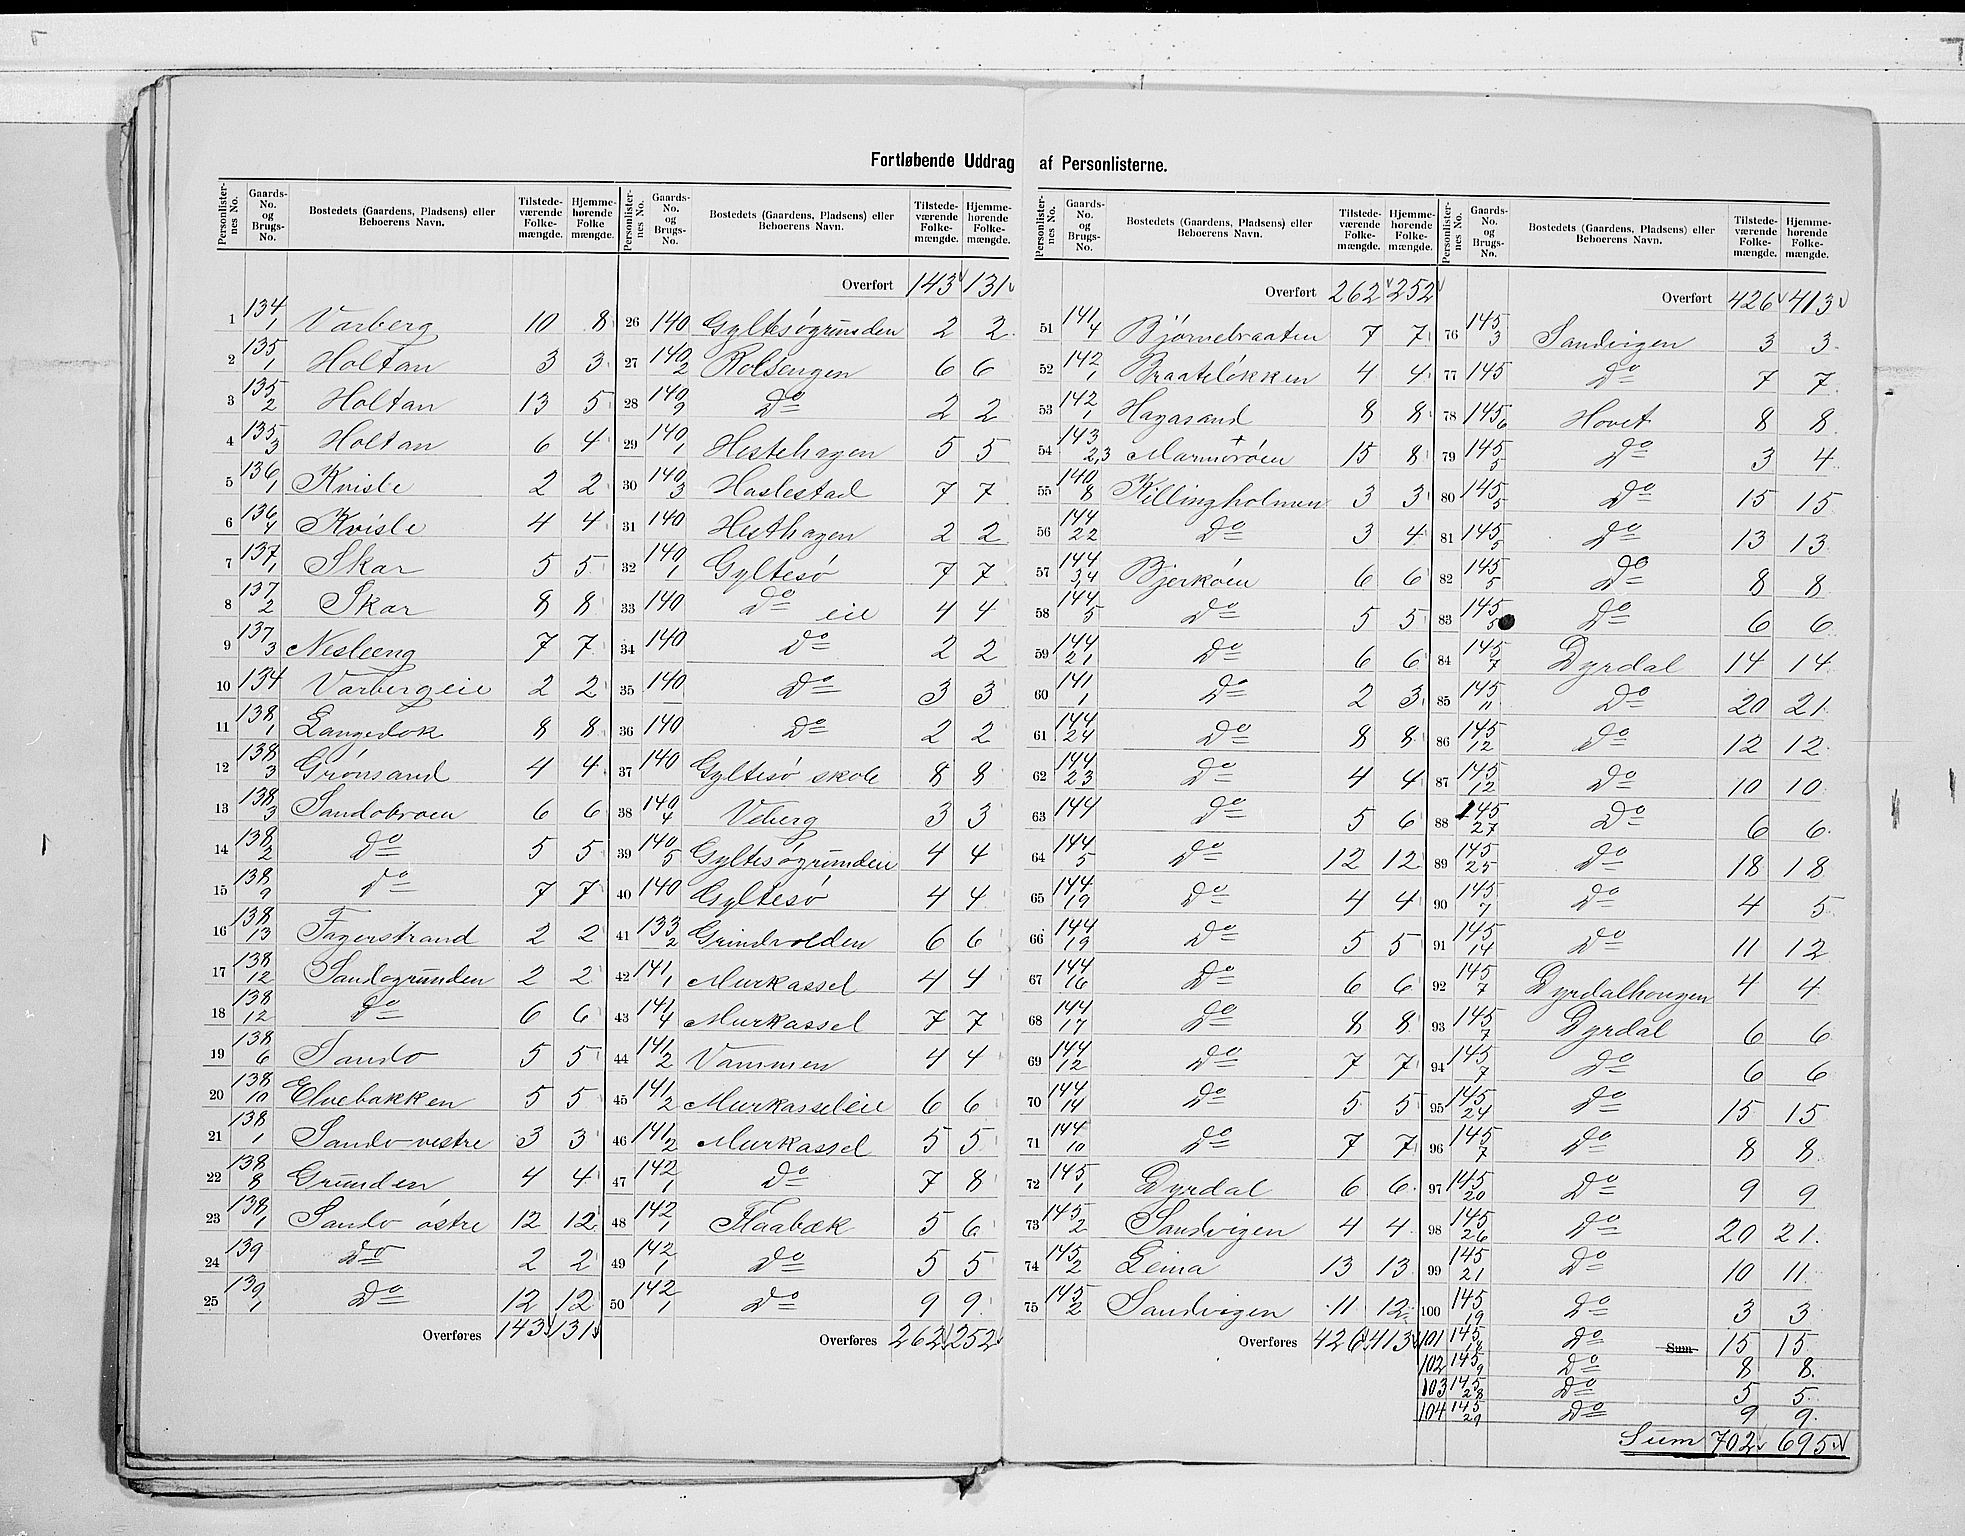 Fortløbende Uddrag af Personlisterne.
Personlister-nes No. | Gaards-No. og Brugs-No. | Bostedets (Gaardens, Pladsens) eller Beboerens Navn. | Tilstede-værende Folke-mængde. | Hjemme-hørende Folke mængde.
1 134/1 Varberg 10 8
2 135/1 Holtan 3 3
3 135/2 Holtan 13 5
4 135/3 Holtan 6 4
5 136/1 Kvisle 2 2
6 136/4 Kvisle 4 4
7 137/1 Skar 5 5
8 137/2 Skar 8 8
9 137/3 Nesleeng 7 7
10 134 Varbergeie 2 2
11 138/1 Langedok 8 8
12 138/3 Grønsand 4 4
13 138/3 Sandobroen 6 6
14 138/2 Do 5 5
15 138/9 Do 7 7
16 138/13 Fagerstrand 2 2
17 138/12 Sandogrunden 2 2
18 138/12 Do 6 6
19 138/6 Sando 5 5
20 138/10 Elvebakken 5 5
21 138/1 Sando vestre 3 3
22 138/8 Grunden 4 4
23 138/1 Sando østre 12 12
24 139 Do 2 2
25 139/1 Do 12 12
Overføres 143 131
Personlister-nes No. | Gaards-No. og Brugs-No. | Bostedets (Gaardens, Pladsens) eller Beboerens Navn. | Tilstede-værende Folke-mængde. | Hjemme-hørende Folke-mængde.
Overført 143 131
26 140 Gyltesøgrunden 2 2
27 140/2 Rolsengen 6 6
28 140/9 Do 2 2
29 140/1 Hestehagen 5 5
30 140/3 Haslestad 7 7
31 140 Hesthagen 2 2
32 140/1 Gyltesø 7 7
33 140 Do eie 4 4
34 140 Do 2 2
35 140 Do 3 3
36 140 Do 2 2
37 140 Gyltesø skole 8 8
38 140/4 Veberg 3 3
39 140/5 Gyltesøgrunden 4 4
40 140 Gyltesø 4 4
41 133/2 Grindvolden 6 6
42 141/1 Murkassel 4 4
43 141/4 Murkassel 7 7
44 141/2 Vammen 4 4
45 141/2 Murkasseleie 6 6
46 141/2 Murkassel 5 5
47 142/1 Do 7 8
48 142/1 Flaabæk 5 6
49 142/1 Do 5 5
50 142/1 Do 9 9
Overføres 262 252
Personlister-nes No. | Gaards-No. og Brugs-No. | Bostedets (Gaardens, Pladsens) eller Beboerens Navn. | Tilstede-værende Folke-mængde. | Hjemme-hørende Folke-mængde.
Overført 262 252
51 141/4 Bjørnebraaten 7 7
52 142/1 Braateløkken 4 4
53 142/1 Hagasand 8 8
54 143/2,3 Marmorøen 15 8
55 140/8 Killingholmen 3 3
56 144/22 Do 3 4
57 144/3,4 Bjerkøen 6 6
58 144/5 Do 5 5
59 144/21 Do 6 6
60 141/1 Do 2 3
61 144/24 Do 8 8
62 144/23 Do 4 4
63 144 Do 5 6
64 144/5 Do 12 12
65 144/19 Do 4 4
66 144/19 Do 5 5
67 144/16 Do 6 6
68 144/17 Do 8 8
69 144/12 Do 7 7
70 144/14 Do 5 5
71 144/10 Do 7 7
72 145/1 Dyrdal 6 6
73 145/2 Sandvigen 4 4
74 145/2 Leina 13 13
75 145/2 Sandvigen 11 12
Overføres 426 413
Personlister-nes No. | Gaards-No. og Brugs-No. | Bostedets (Gaardens, Pladsens) eller Beboerens Navn. | Tilstede-værende Folke-mængde. | Hjemme-hørende Folke-mængde.
Overført 426 413
76 145/3 Sandvigen 3 3
77 145 Do 7 7
78 145/6 Hovet 8 8
79 145/5 Do 3 4
80 145/5 Do 15 15
81 145/5 Do 13 13
82 145/5 Do 8 8
83 145/5 Do 6 6
84 145/7 Dyrdal 14 14
85 145/11 Do 20 21
86 145/12 Do 12 12
87 145/12 Do 10 10
88 145/27 Do 6 6
89 145/25 Do 18 18
90 145/7 Do 4 5
91 145/14 Do 11 12
92 145/7 Dyrdalhougen 4 4
93 145/7 Dyrdal 6 6
94 145/7 Do 6 6
95 145/24 Do 15 15
96 145/7 Do 8 8
97 145/20 Do 9 9
98 145/26 Do 20 21
99 145/21 Do 10 11
100 145/19 Do 3 3
101 145/18 Do Sum 15 15
102 145/9 Do 8 8
103 145/28 Do 5 5
104 145/29 Do 9 9
Sum 702 695